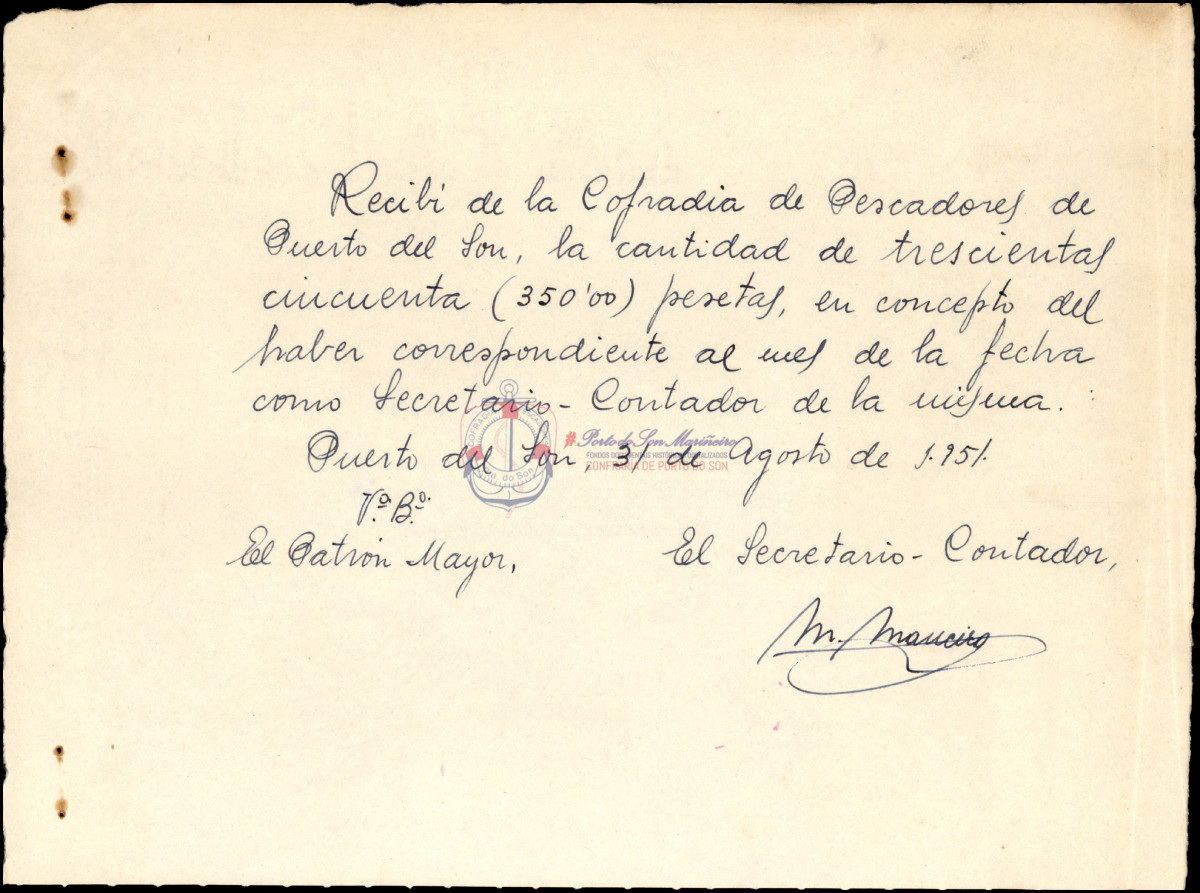 Recibí de la Cofradia de Pescadores de
Puerto del Son, la cantidad de trescientas
cincuenta (350'00) pesetas, en concepto del
haber correspondiente al mes de la fecha
como Secretario-Contador de la misma.
Puerto del Son, 31 de Agosto de 1.951.
#Porto do Son Mariñeiro
CONFRARÍA DE PORTO DO SON
Vº. Bº.
El Patrón Mayor,
El Secretario-Contador,
M. Maneiro